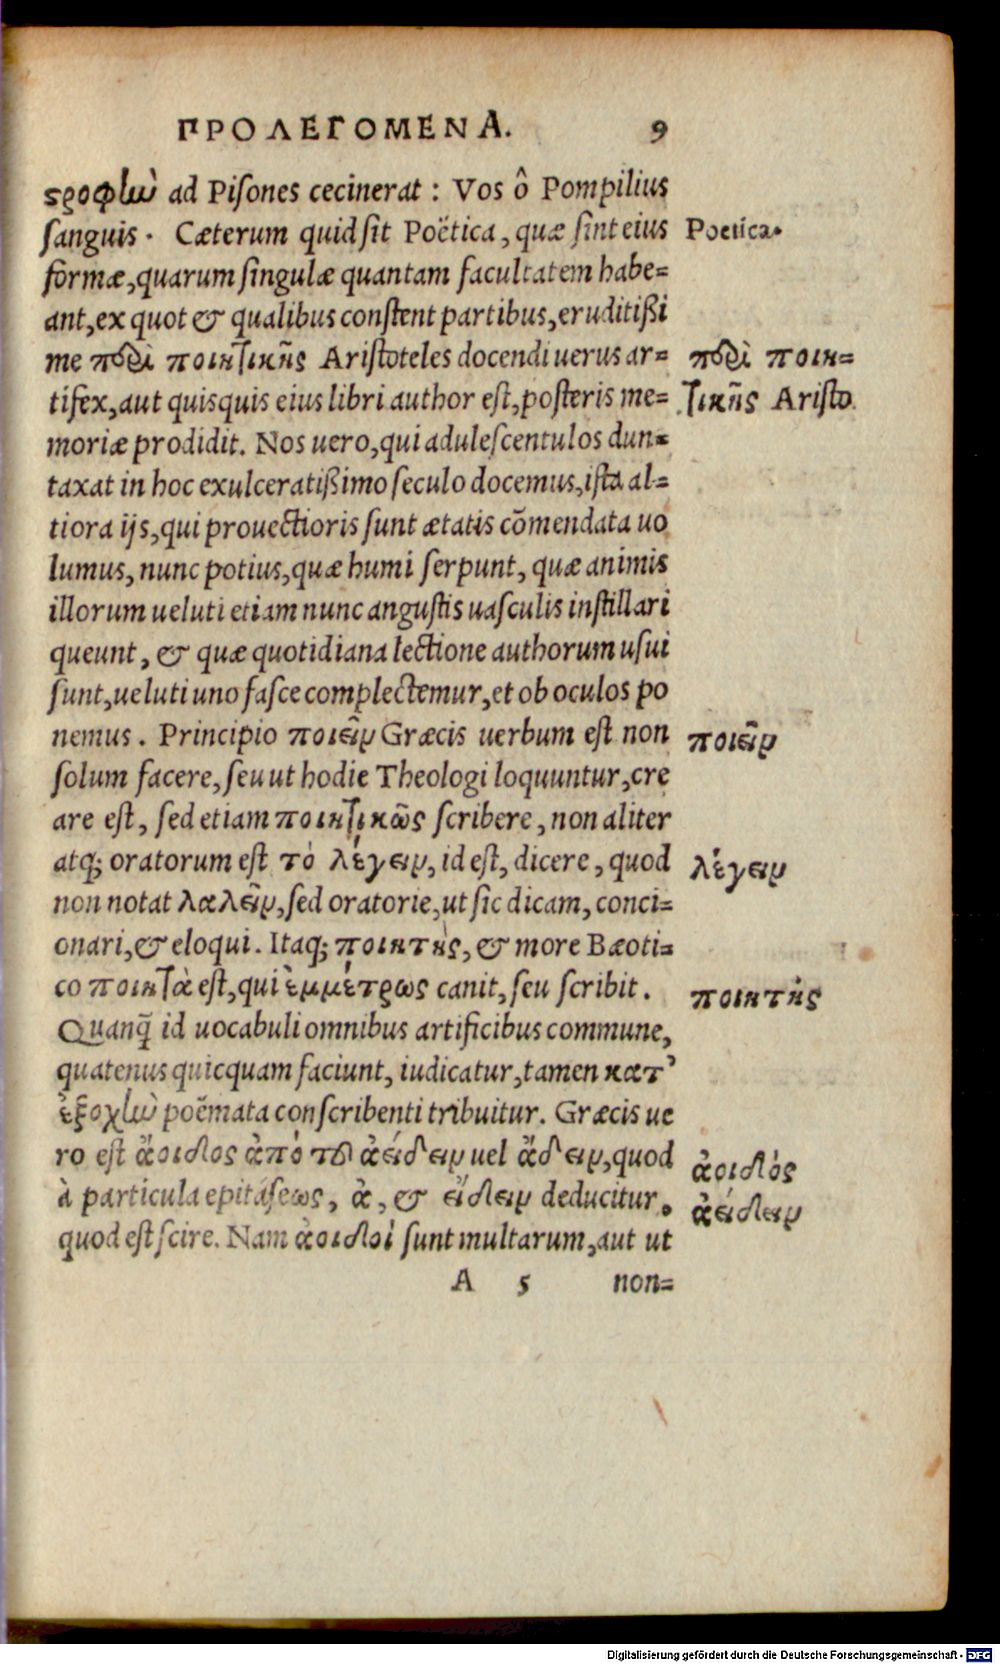 ΠΡΟΛΕΓΟΜΕΝΑ. 9
ςροφὴν ad Piſones cecinerat : Vos ô Pompilius
ſanguis. Cæterum quid ſit Poëtica, quæ ſint eius
formæ, quarum ſingulæ quantam facultatem habe=
ant, ex quot & qualibus conſtent partibus, eruditißi
me περὶ ποιητικῆς Ariſtoteles docendi uerus ar=
tifex, aut quisquis eius libri author eſt, poſteris me=
moriæ prodidit. Nos uero, qui aduleſcentulos dun=
taxat in hoc exulceratißimo ſeculo docemus, iſta al=
tiora ijs, qui prouectioris ſunt ætatis cõmendata uo
lumus, nunc potius, quæ humi ſerpunt, quæ animis
illorum ueluti etiam nunc anguſtis uaſculis inſtillari
queunt, & quæ quotidiana lectione authorum uſui
ſunt, ueluti uno faſce complectemur, et ob oculos po
nemus. Principio ποιεῖν Græcis uerbum eſt non
ſolum facere, ſeu ut hodie Theologi loquuntur, cre
are eſt, ſed etiam ποιητικῶς ſcribere, non aliter
atq; oratorum eſt τὸ λέγειν, id eſt, dicere, quod
non notat λαλεῖν, ſed oratorie, ut ſic dicam, conci=
onari, & eloqui. Itaq; ποιητὴς, & more Bæoti=
co ποιητὰ eſt, qui ἐμμέτρως canit, ſeu ſcribit.
Quanq̃ id uocabuli omnibus artificibus commune,
quatenus quicquam faciunt, iudicatur, tamen κατ᾽
ἐξοχὴν poëmata conſcribenti tribuitur. Græcis ue
ro eſt ἄοιδος ἀπὸ τοῦ ἀείδειν uel ἄδειν, quod
à particula epitáſεως, ἀ, & εἴδειν deducitur,
quod eſt ſcire. Nam ἀοιδοὶ ſunt multarum, aut ut
A 5 non=
Poetica.
περὶ ποιη=
τικῆς Ariſto.
ποιεῖν
λέγειν
ποιητὴς
ἀοιδὸς
ἀείδειν
Digitalisierung gefördert durch die Deutsche Forschungsgemeinschaft - DFG